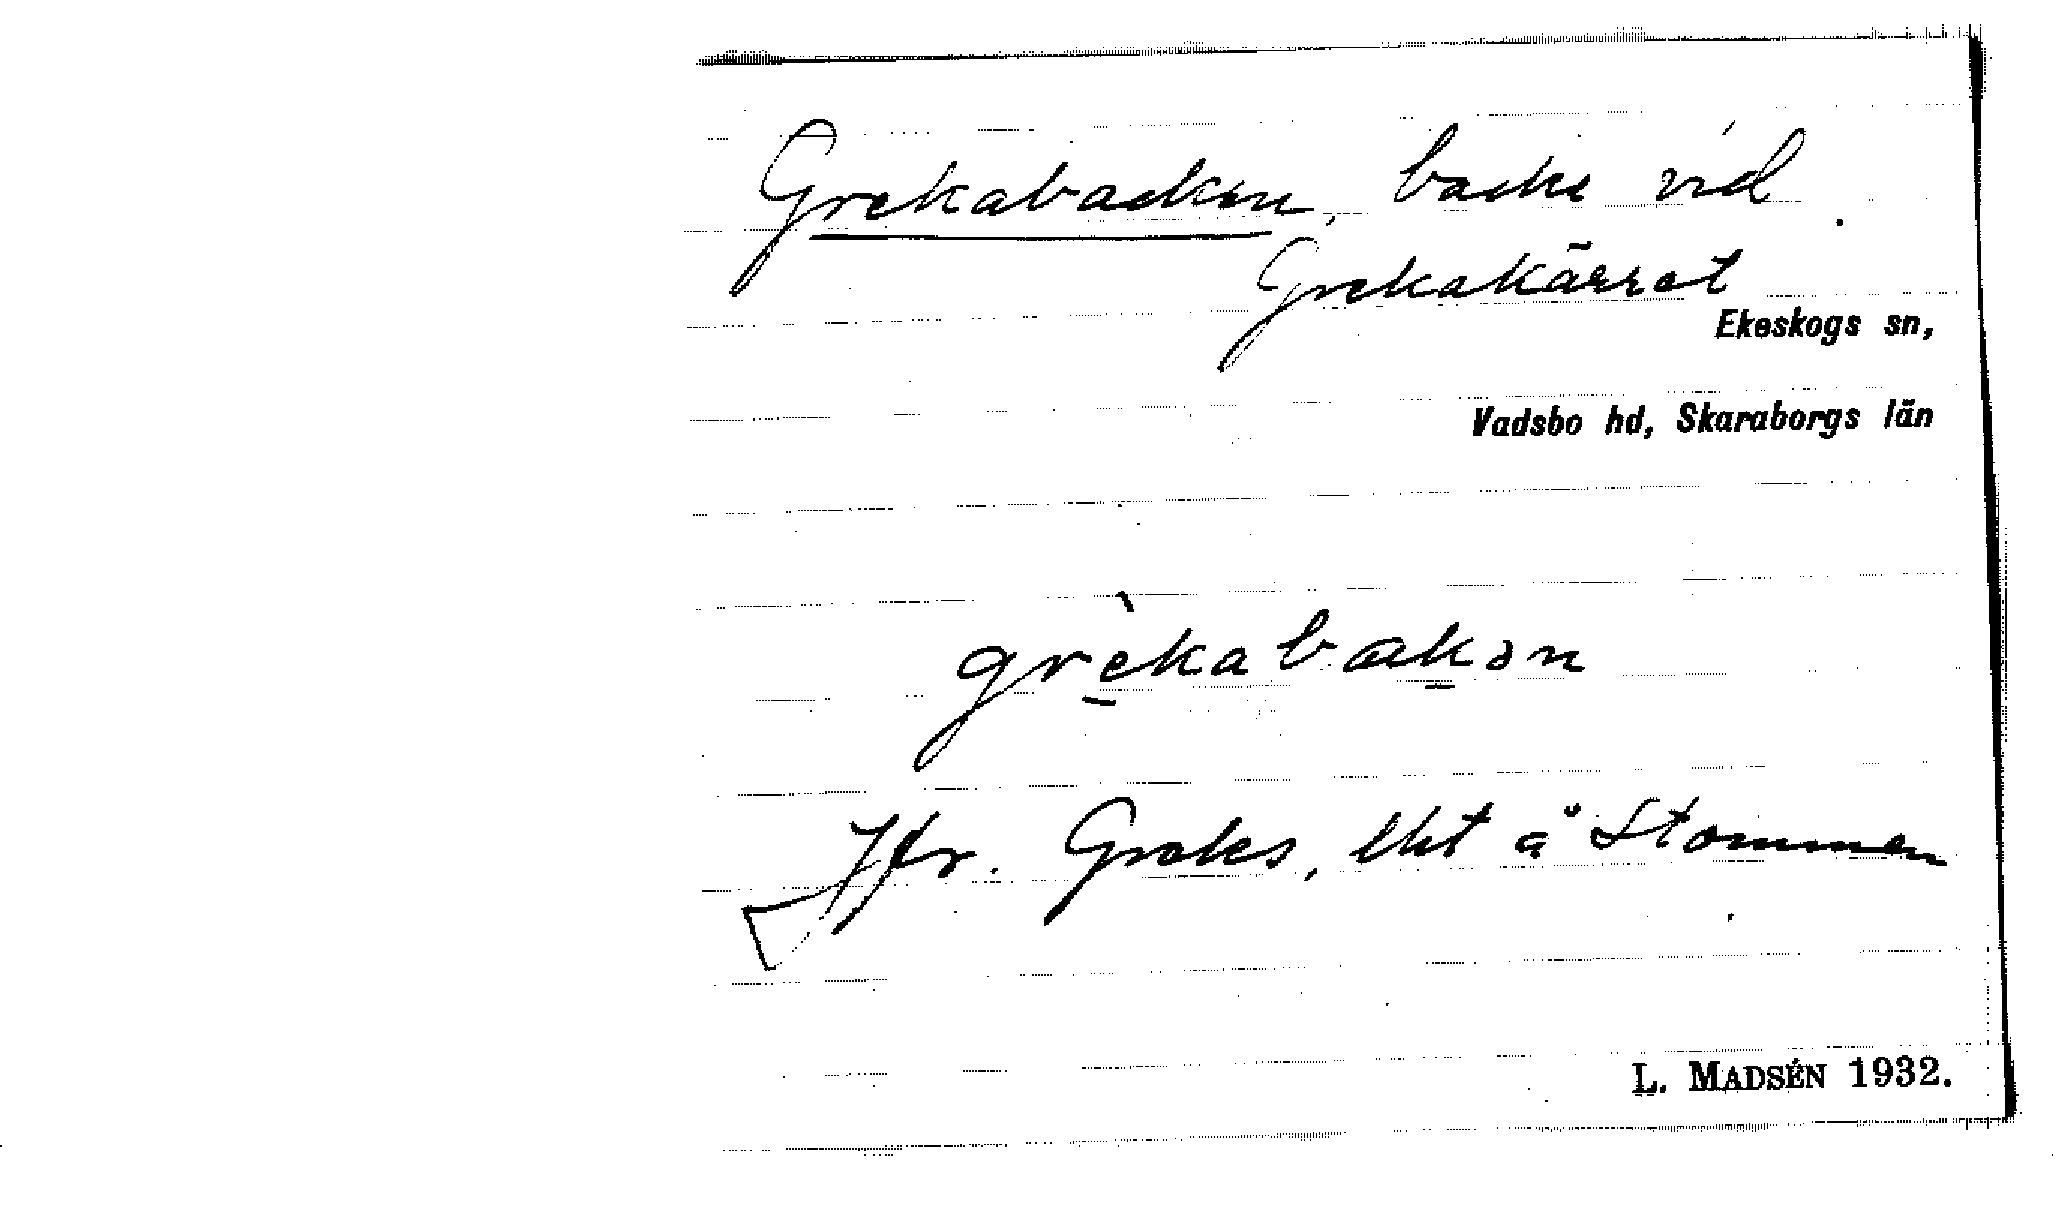 Grekabacken, backe vid
Grekakärret
Ekeskogs sn,
Vadsbo hd, Skaraborgs län
grèkabakən
Jfr. Greks, lht å Stommen
L. MADSÉN 1932.